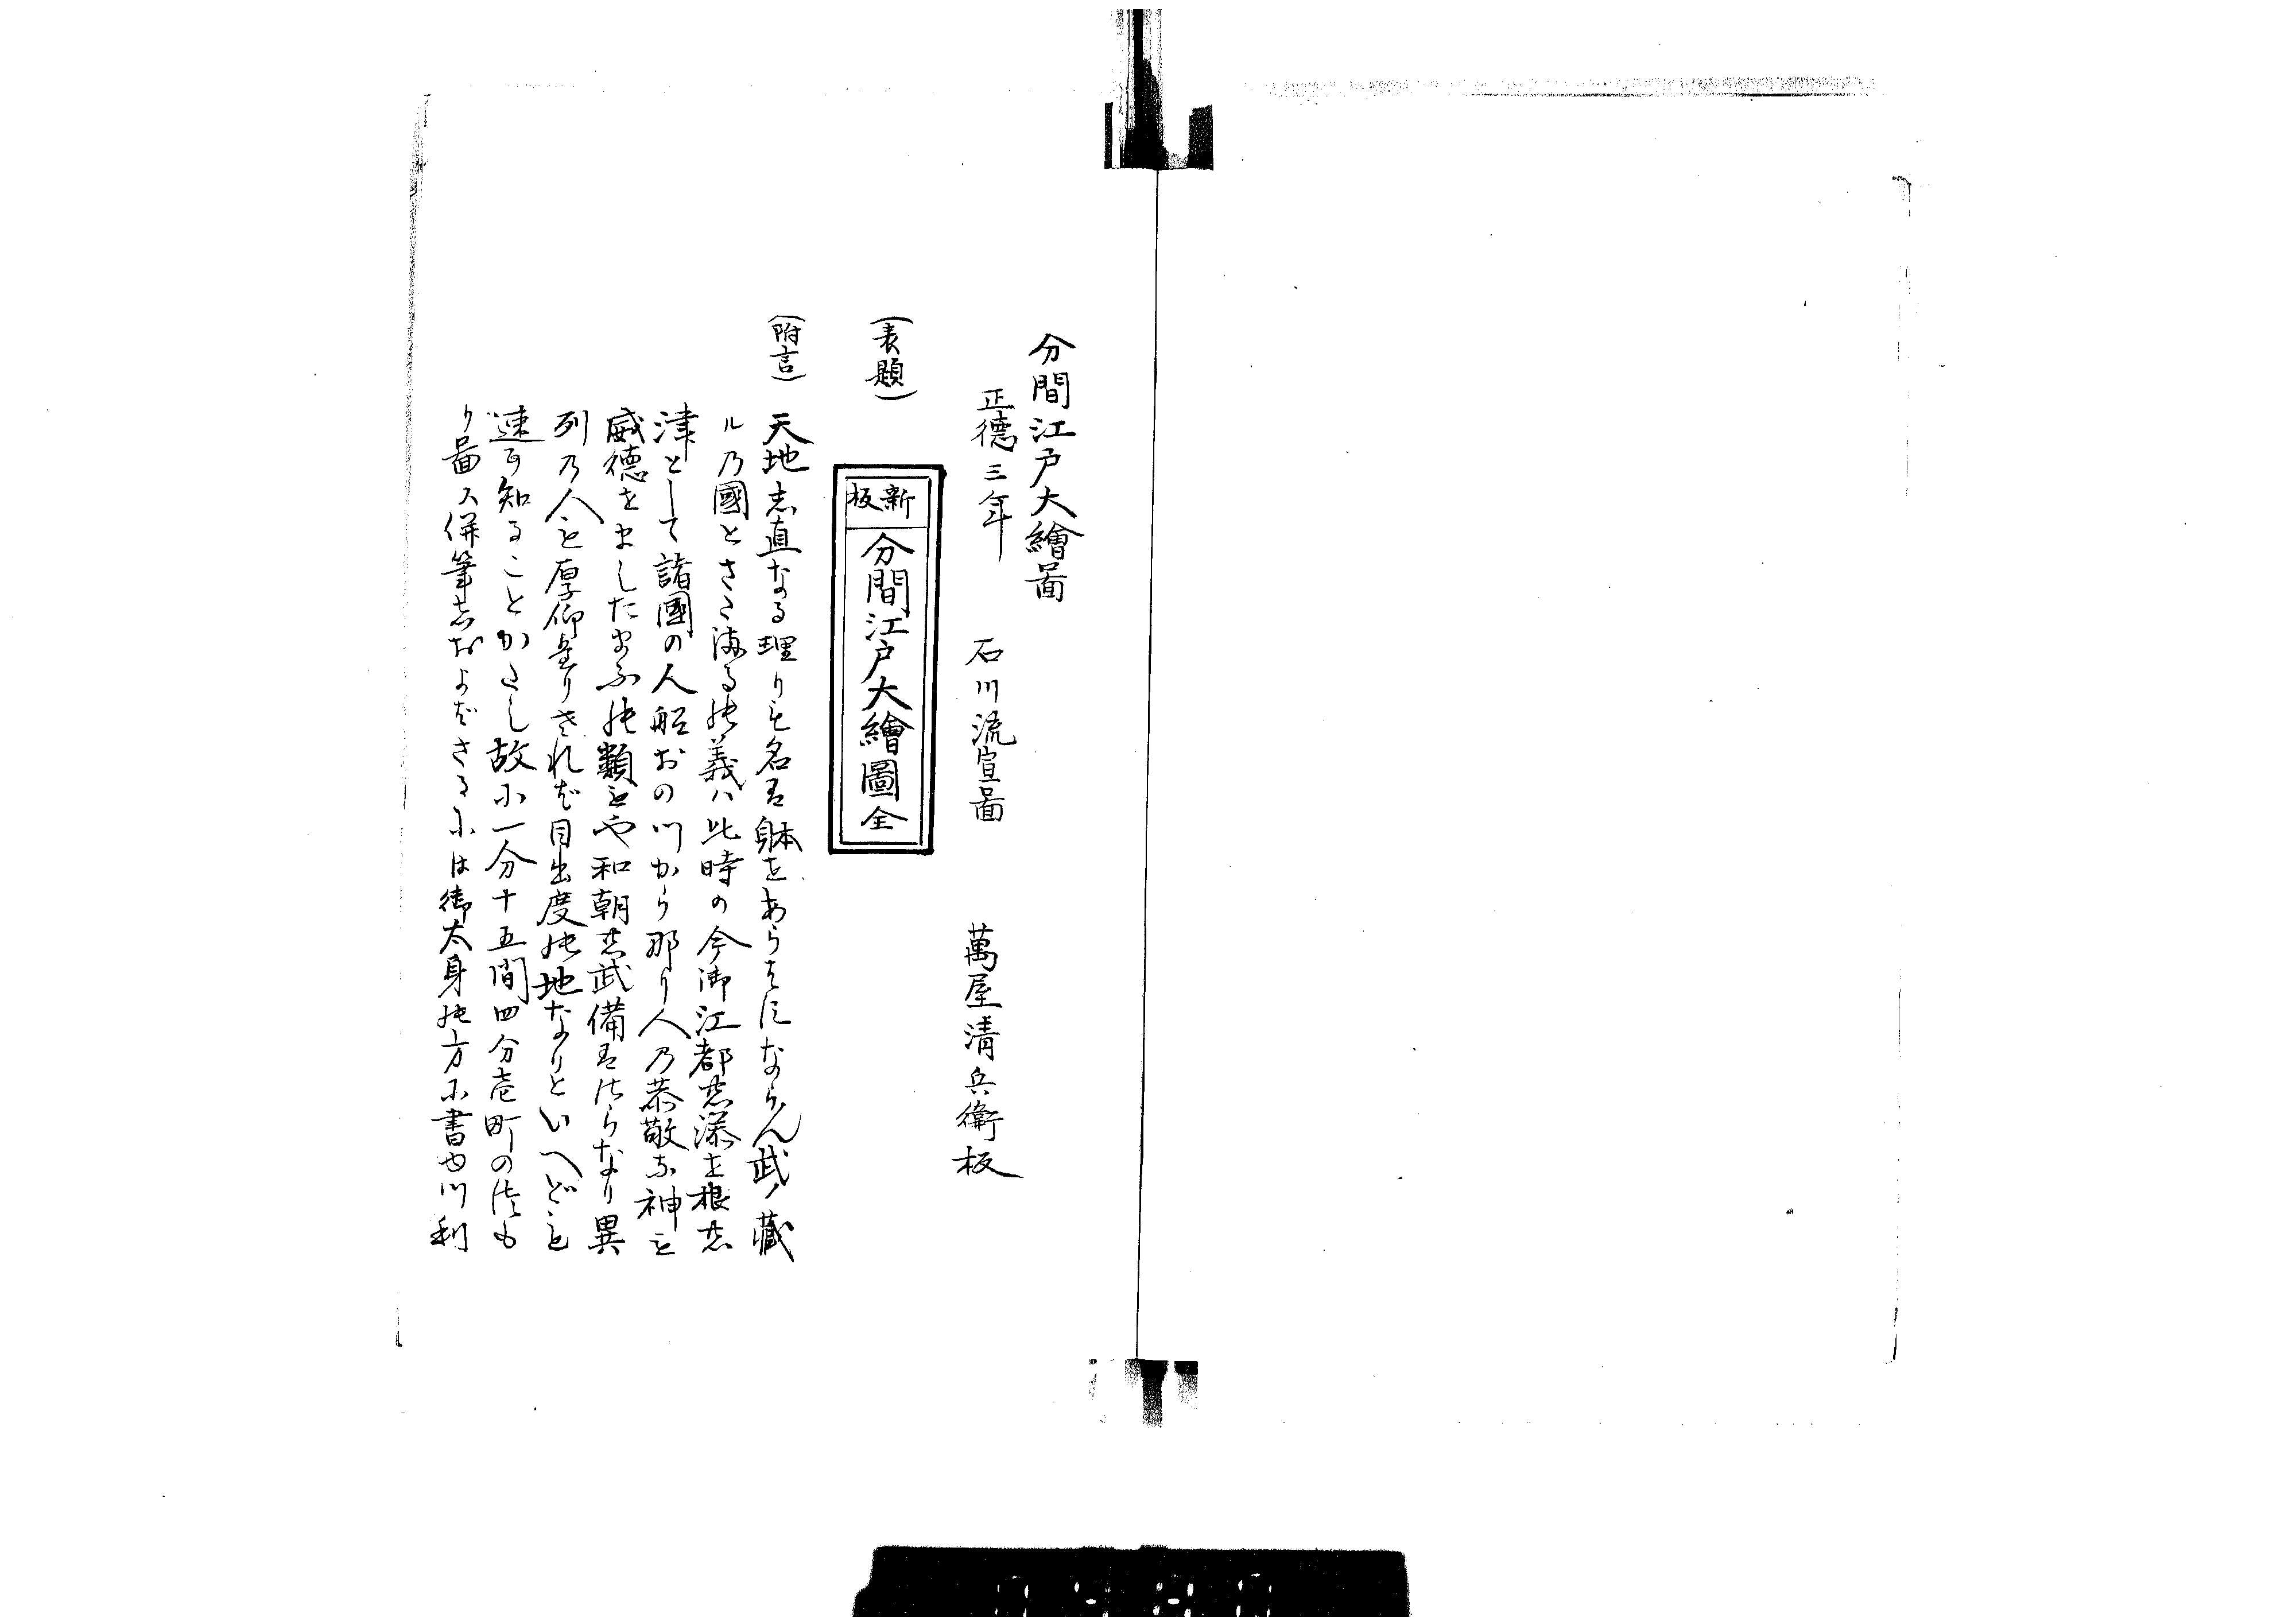 分間江戸大繪啚
正德三年 石川流宣啚 萬屋清兵衛板
(表題)
新板
分間江戸大繪圖全
(附言)
天地志直なる理りも名は躰をあらはにならん武ノ藏
ル乃國とさた海る能義ハ此時の今御江都
津として諸國の人船おの川から那り人乃恭敬神も
威德をましたまふ能類もや和朝武備 なり異
列乃人も厚仰 りされど目出度能地なりといへども
速 知ることかたし故尓一分十五間四分壱町の
り啚 併筆 およばさるには御太身能方尓書や川利